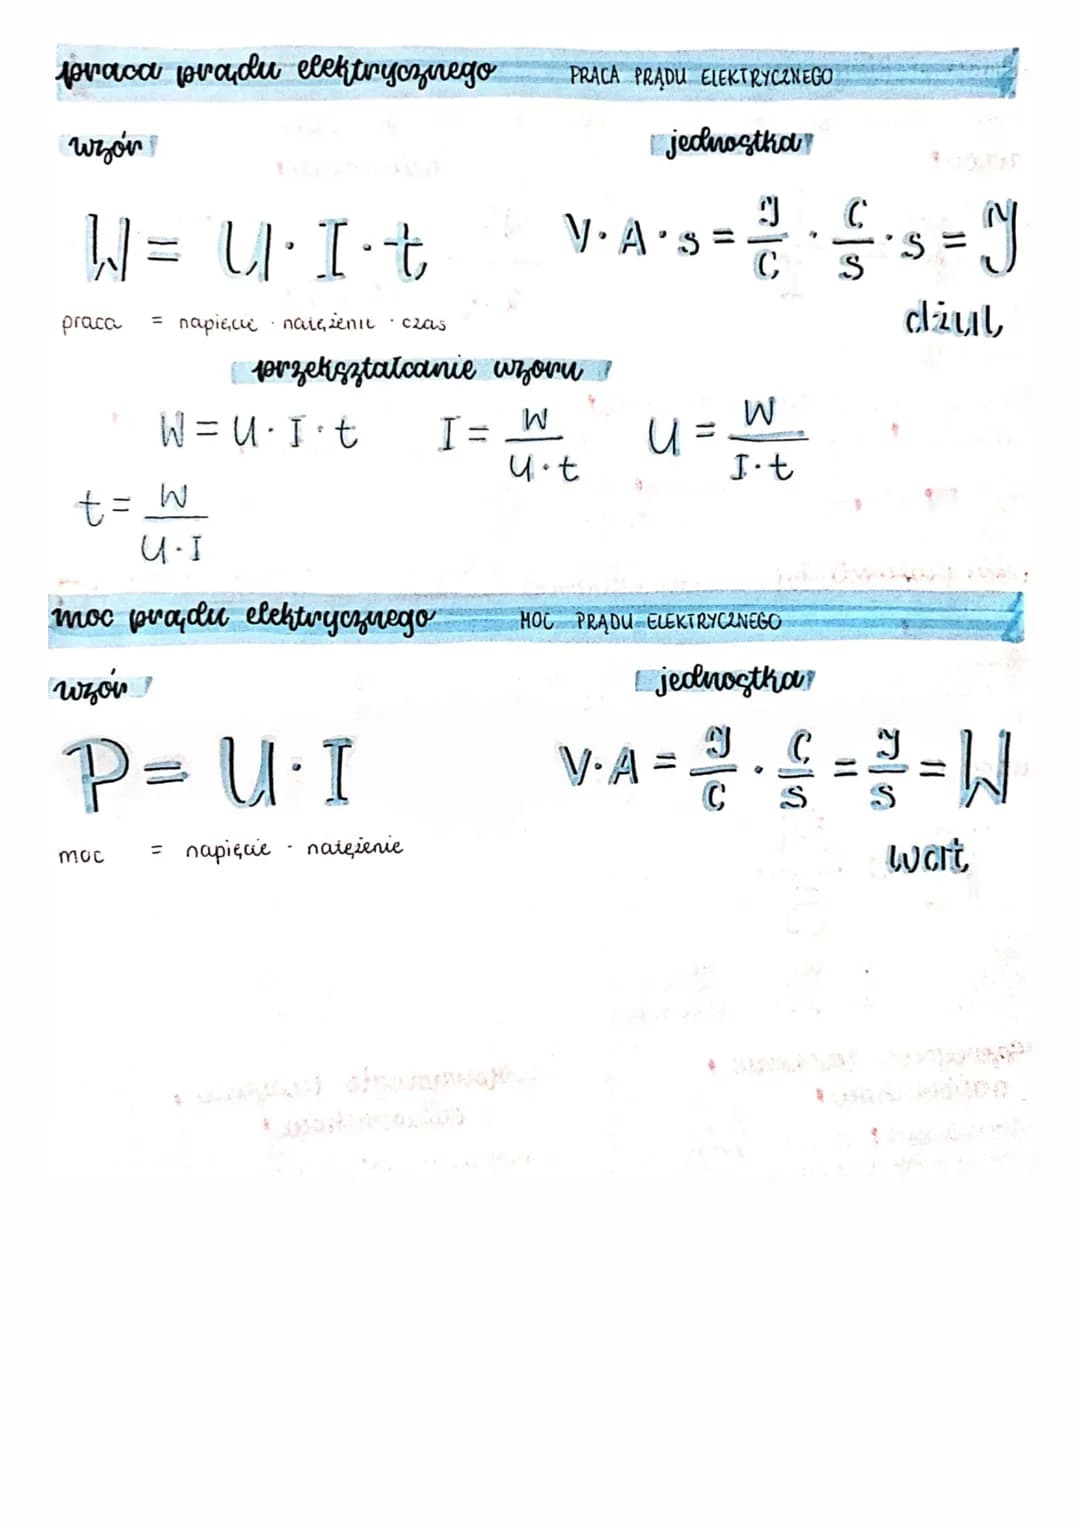 praca prądu elektrycznego PRACA PRĄDU ELEKTRYCZNEGO
wzór jednostka
W = U · I · t V · A · s = J/C · C/s · s = J
praca = napięcie · natężenie · czas dżul
przekształcanie wzoru
W = U · I · t I = W/U · t U = W/I · t
t = W/U · I
moc prądu elektrycznego MOC PRĄDU ELEKTRYCZNEGO
wzór jednostka
P = U · I V · A = J/C · C/s = J/s = W
moc = napięcie · natężenie wat